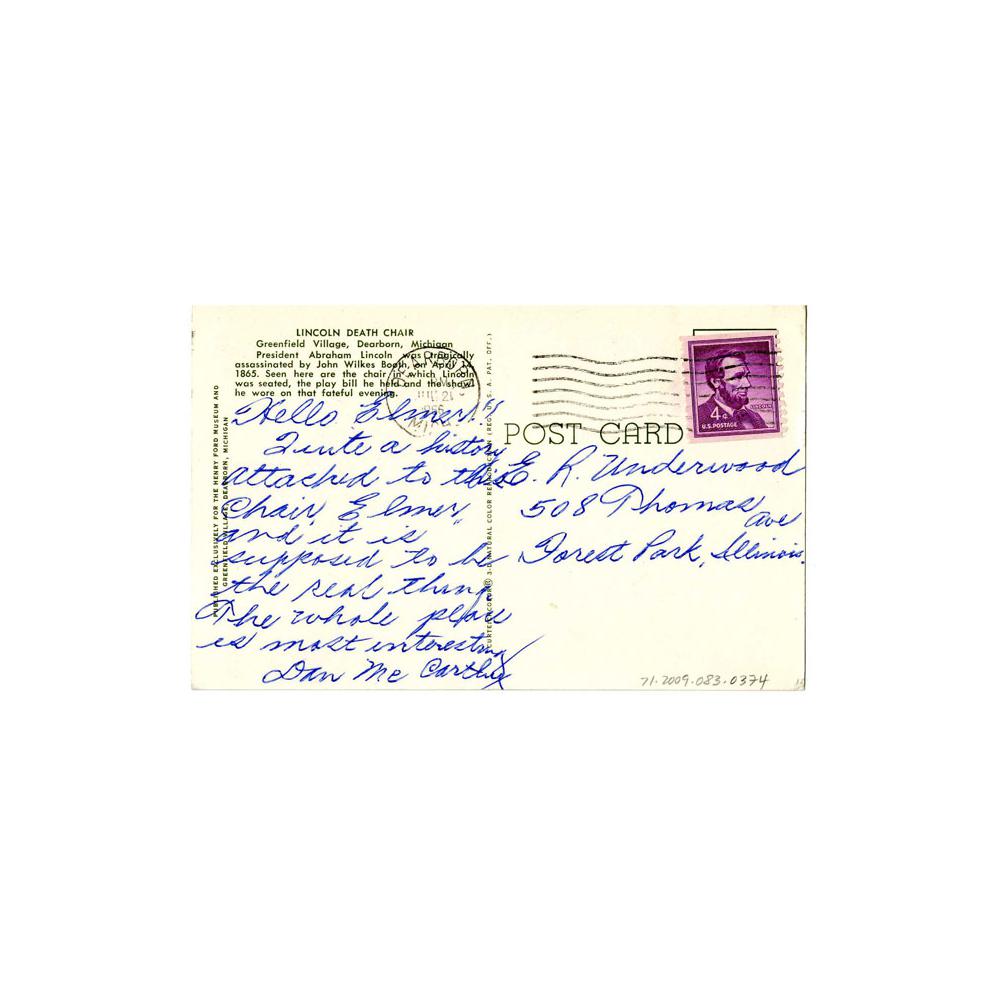 LINCOLN DEATH CHAIR
Greenfield Village, Dearborn, Michigan
President Abraham Lincoln was tragically
assassinated by John Wilkes Booth, on April 14,
1865. Seen here are the chair in which Lincoln
was seated, the play bill he held and the shawl
he wore on that fateful evening.
Hello Elmer!!
Quite a history
attached to this
Chair, Elmer,
and it is
supposed to be
the real thing
The whole place
is most interesting
Dan Mc Carthy
PUBLISHED EXCLUSIVELY FOR THE HENRY FORD MUSEUM AND
GREENFIELD VILLAGE, DEARBORN, MICHIGAN
DEARBORN
JUL 21
MICH
NATURAL COLOR
U. S. A. PAT. OFF.)
POST CARD
LINCOLN
4¢
U.S. POSTAGE
E. R. Underwood
508 Thomas
Ave
Forest Park, Illinois.
71.2009.083.0374